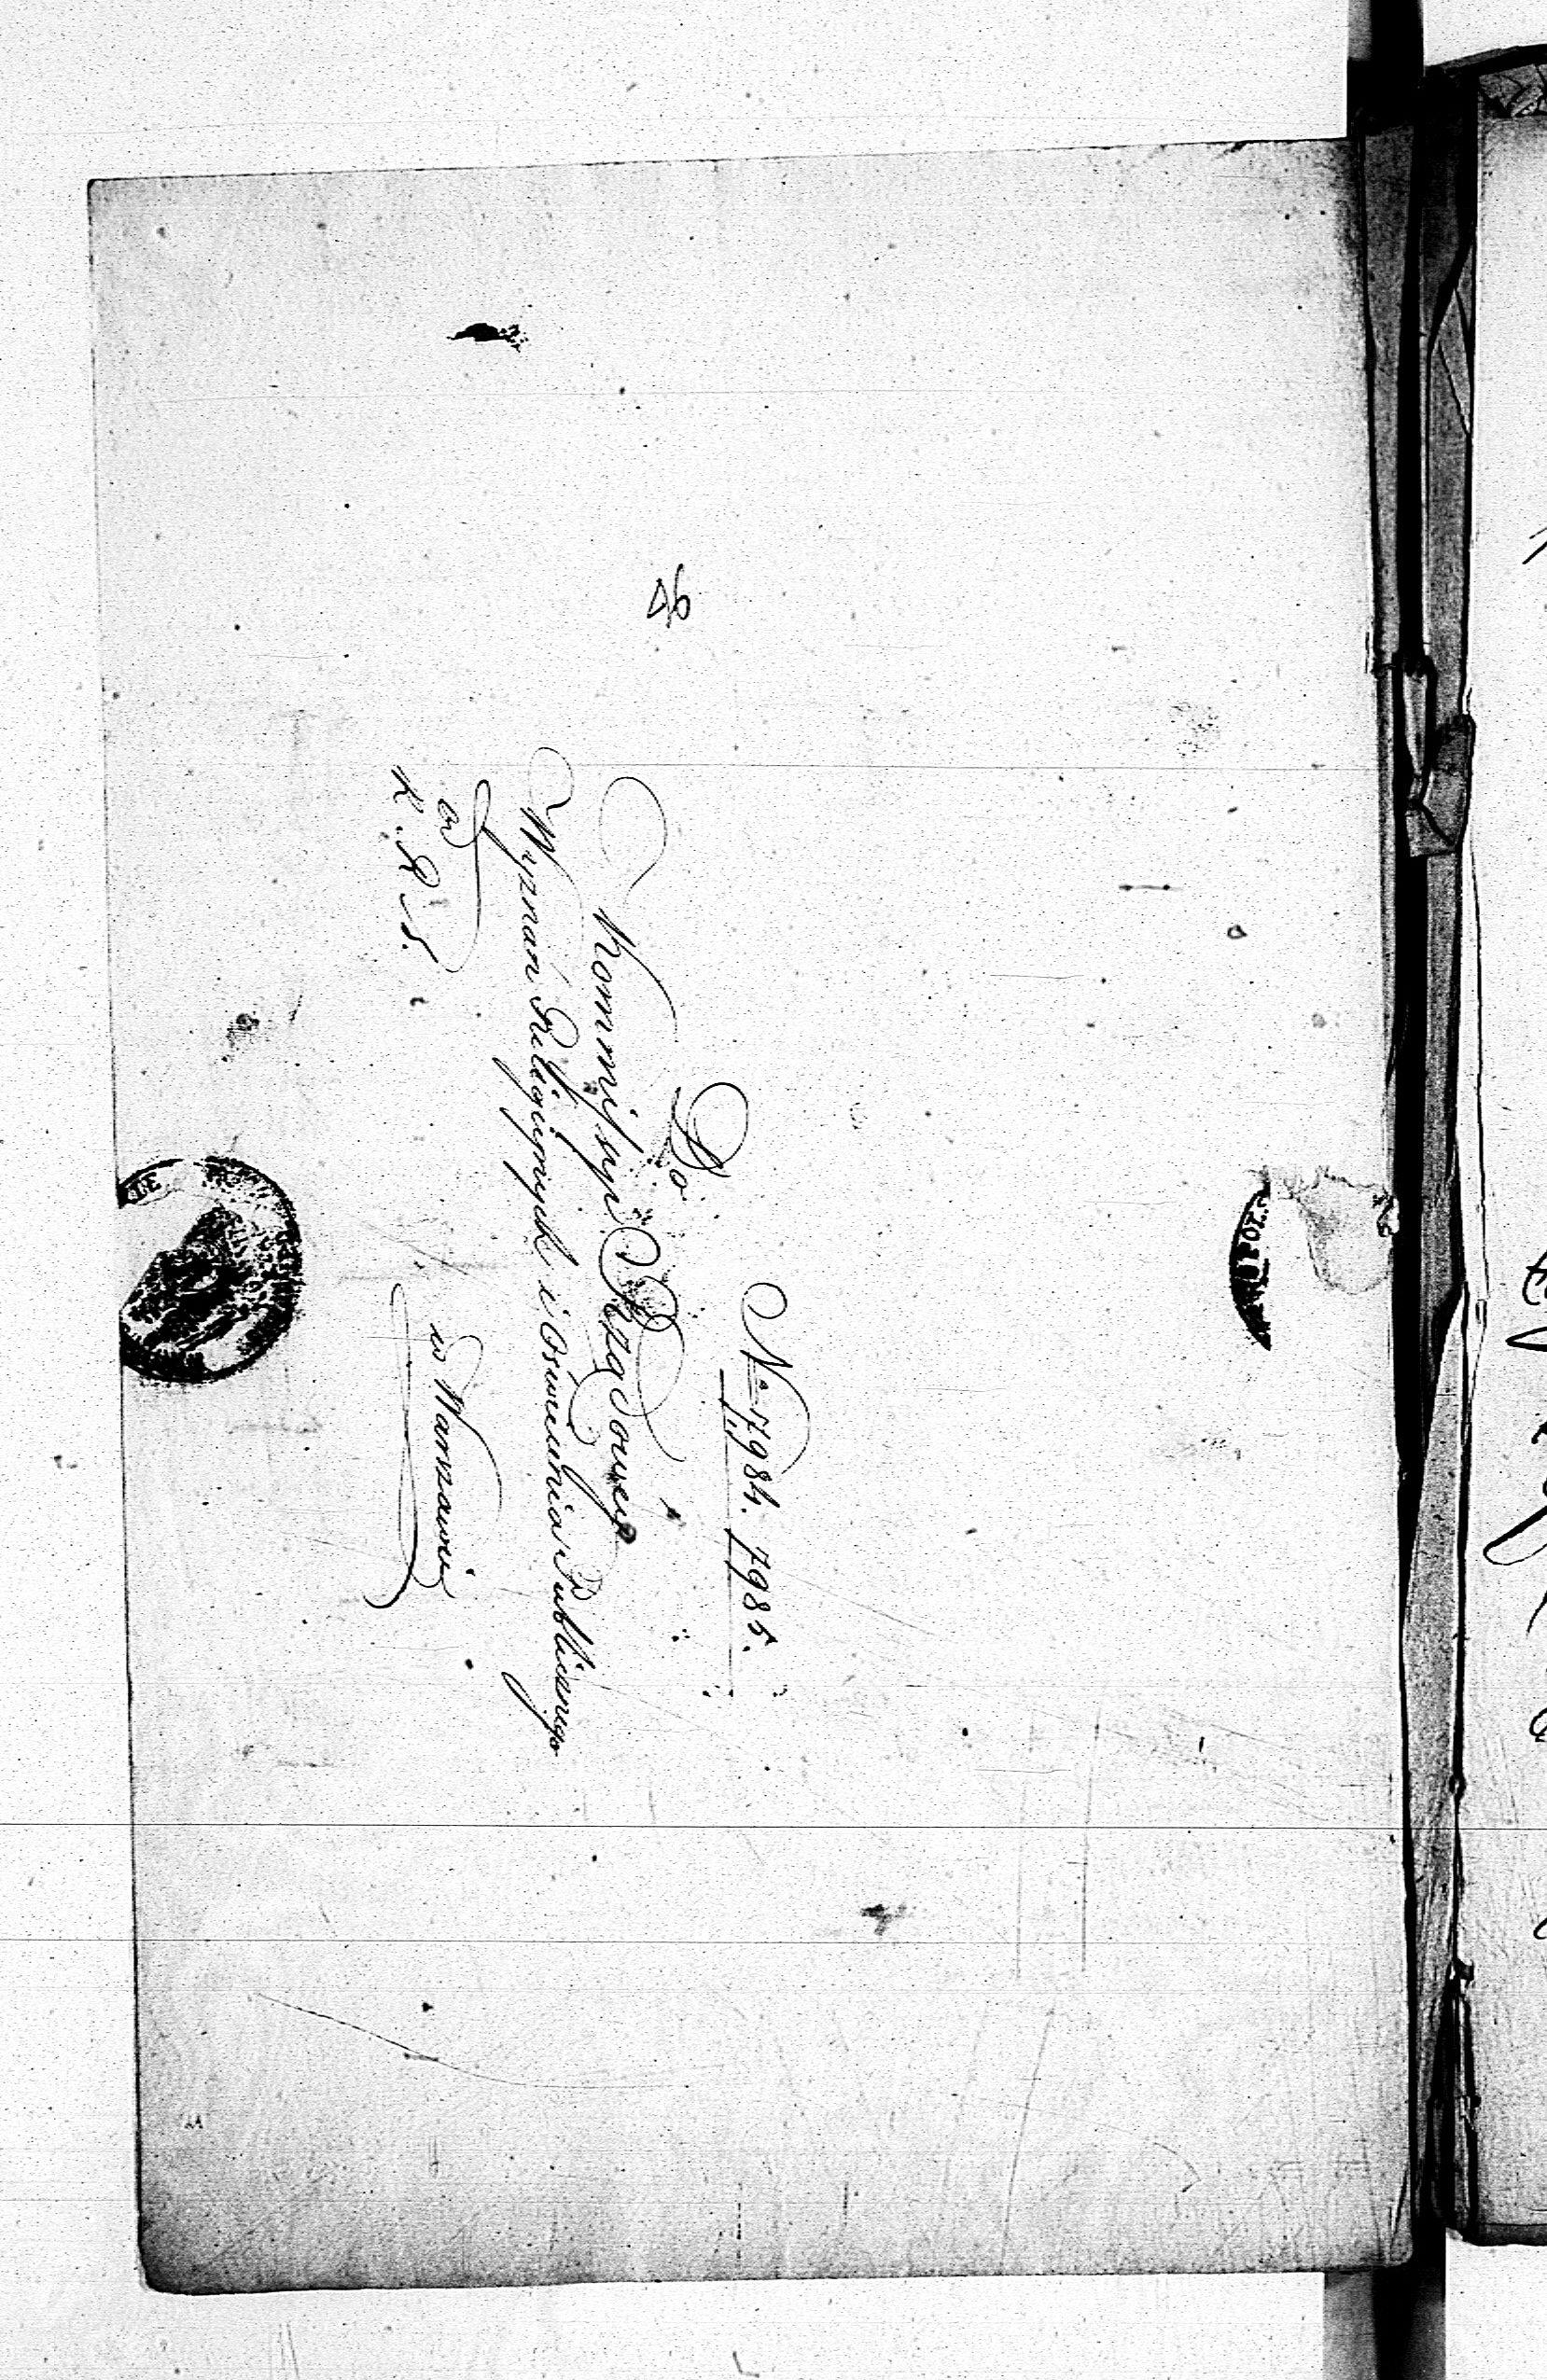 46
No 7984. 7985.
Do
Kommissyi Rządowey
Wyznań Religijnych i Oswiecenia Publicznego
od
w Warszawie